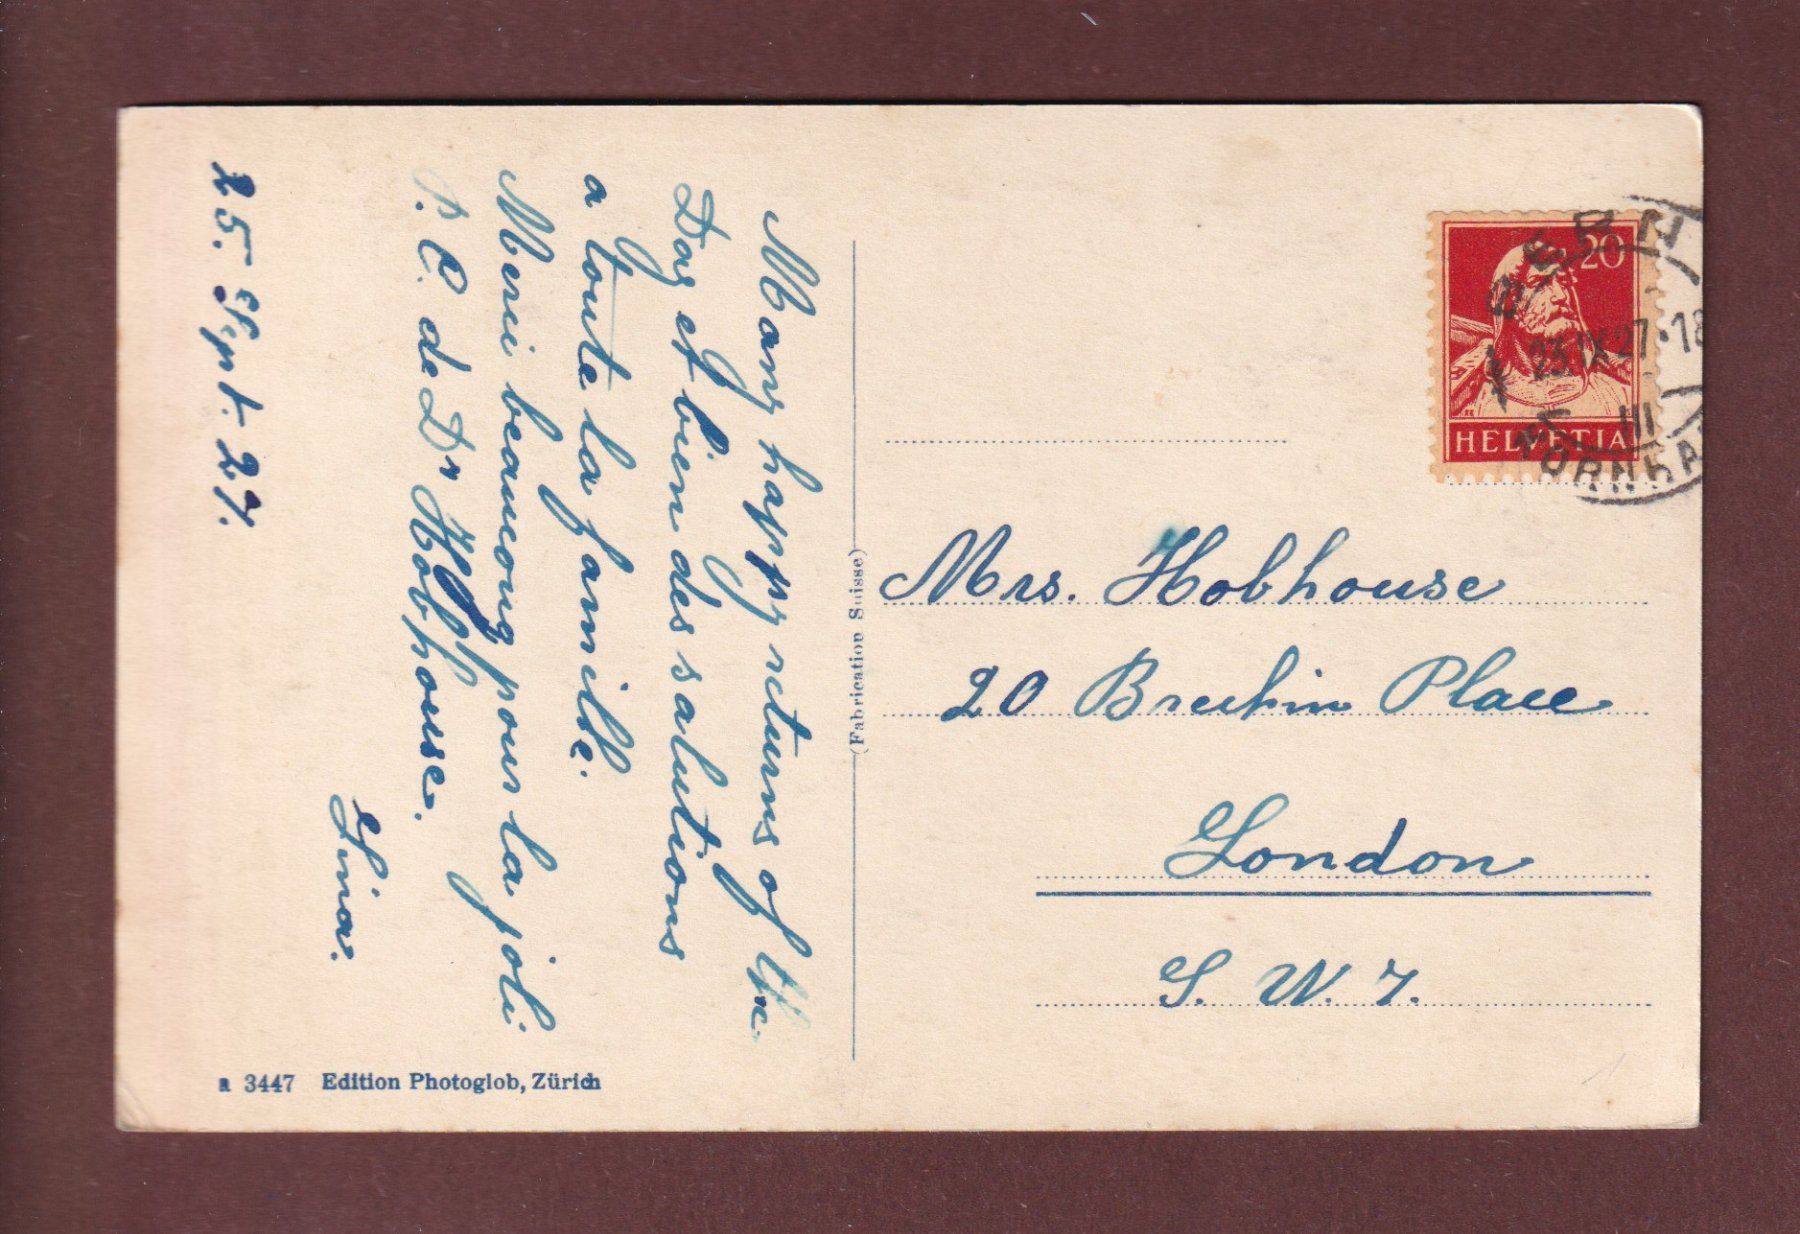 Many happy returns of the
Day et bien des salutions
a toute la famille.
Merci beaucoup pour la joli
P. C. de Dr Hobhouse.
Lina.
25. Sept. 27.
a 3447 Edition Photoglob, Zürich
(Fabrication Suisse)
20
HELVETIA
BERN
23.IX.27.18
III
Mrs. Hobhouse
20 Brechin Place
London
S. W. 7.